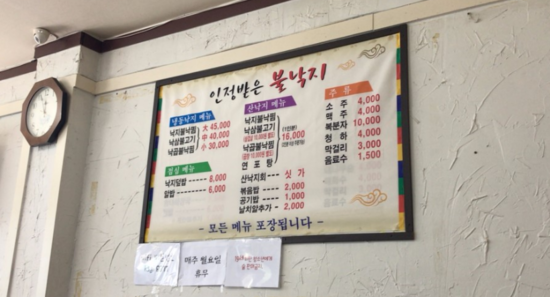 인정받은 불낙지
냉동낙지 메뉴
낙지불낙찜 大 45,000
낙삼불고기 中 40,000
낙곱불낙찜 小 30,000
점심 메뉴
낙지덮밥 8,000
알밥 6,000
산낙지 메뉴
낙지불낙찜 (1인분)
낙삼불고기 16,000
낙곱불낙찜
연포탕
산낙지회 싯가
볶음밥 2,000
공기밥 1,000
날치알추가 2,000
주류
소주 4,000
맥주 4,000
복분자 10,000
청하 4,000
막걸리 3,000
음료수 1,500
- 모든 메뉴 포장됩니다 -
매주 월요일
휴무